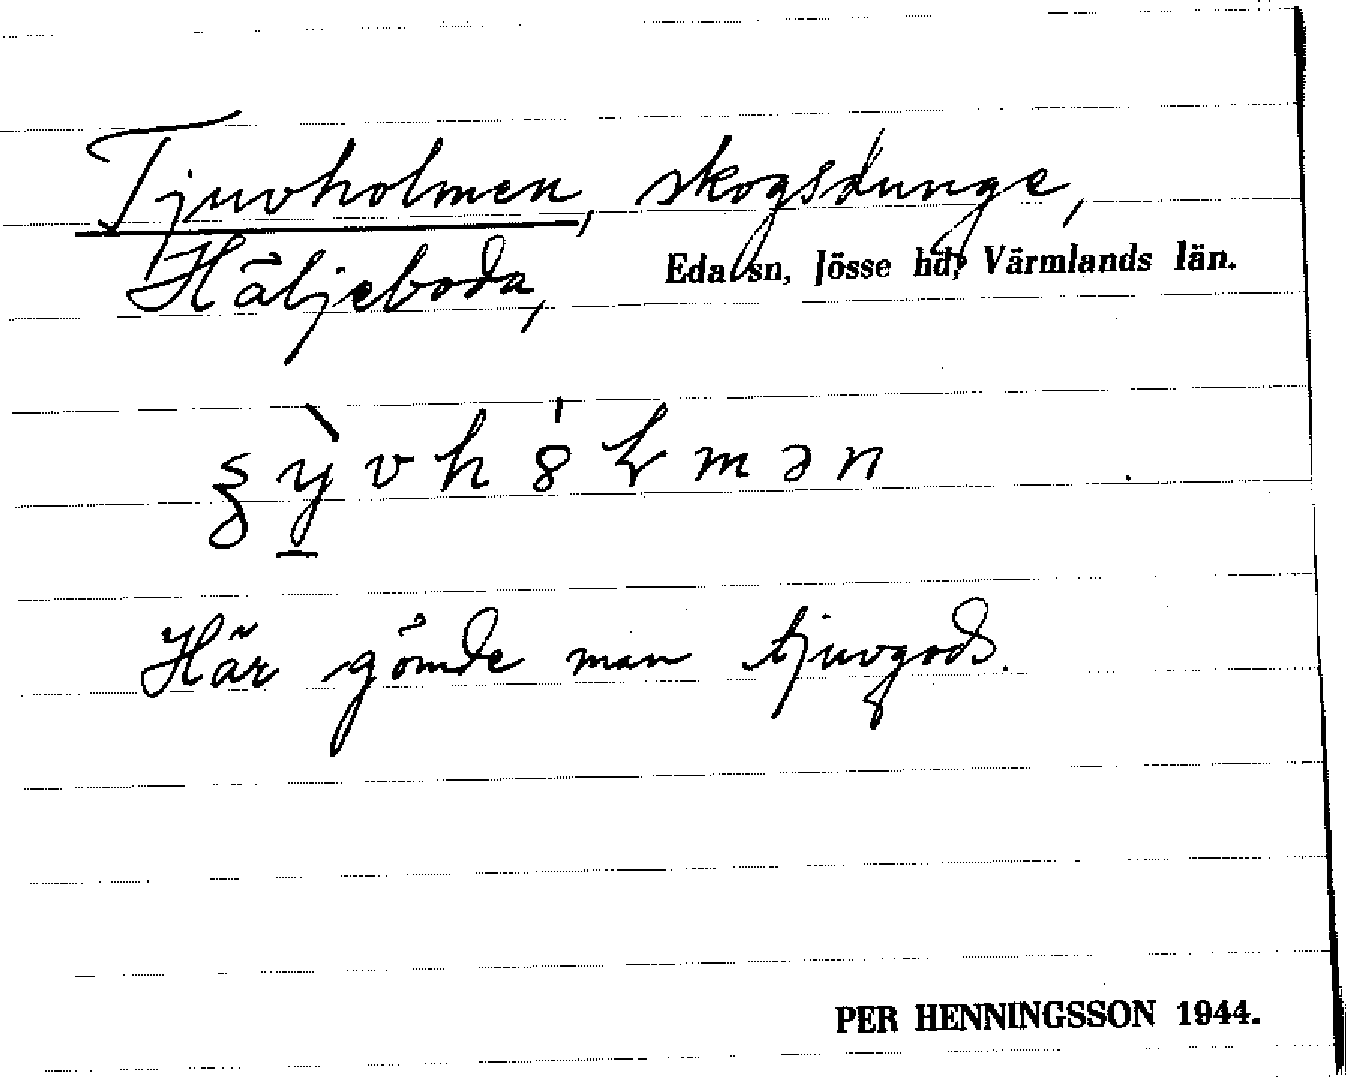 Tjuvholmen, skogsdunge,
Häljeboda, Eda sn, Jösse hd, Värmlands län.
Här gömde man tjuvgods.
PER HENNINGSSON 1944.